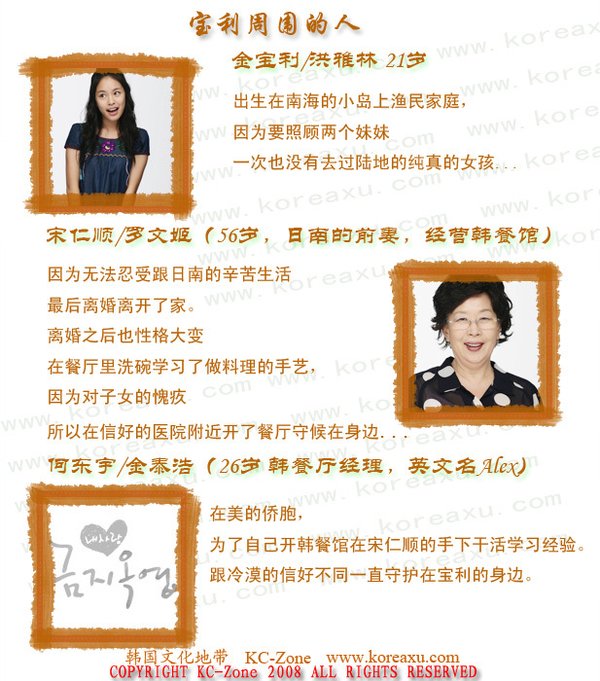 宝利周围的人
金宝利/洪雅林 21岁
出生在南海的小岛上渔民家庭，
因为要照顾两个妹妹
一次也没有去过陆地的纯真的女孩...
宋仁顺/罗文姬（56岁，日南的前妻，经营韩餐馆）
因为无法忍受跟日南的辛苦生活
最后离婚离开了家。
离婚之后也性格大变
在餐厅里洗碗学习了做料理的手艺，
因为对子女的愧疚
所以在信好的医院附近开了餐厅守候在身边...
何东宇/金泰浩（26岁 韩餐厅经理，英文名Alex）
在美的侨胞，
为了自己开韩餐馆在宋仁顺的手下干活学习经验。
跟冷漠的信好不同一直守护在宝利的身边。
내사랑
금지옥엽
韩国文化地带 KC-Zone www.koreaxu.com
COPYRIGHT KC-Zone 2008 ALL RIGHTS RESERVED
www.koreaxu.com